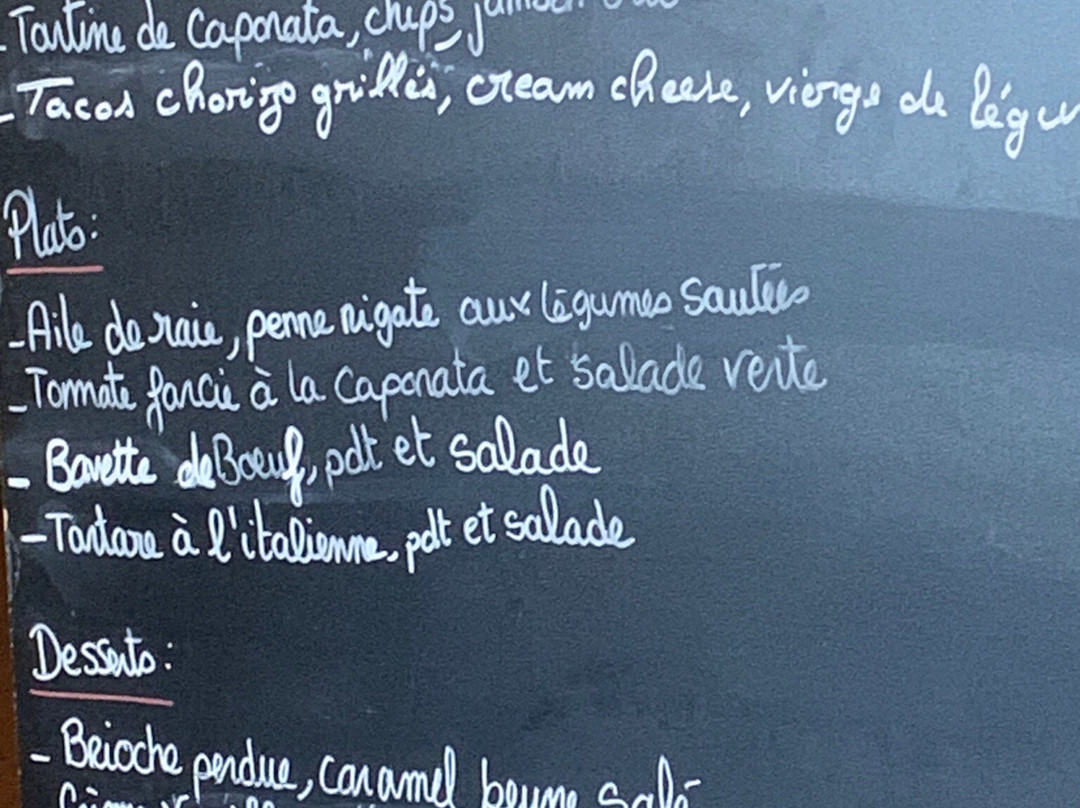 - Tartine de Caponata, chips, jambon
- Tacos chorizo grillés, cream cheese, vierge de légu
Plats:
- Aile de raie, penne rigate aux légumes sautées
- Tomate farcie à la Caponata et salade verte
- Bavette de Boeuf, pdt et salade
- Tartare à l'italienne, pdt et salade
Desserts:
- Brioche perdue, caramel beurre salé